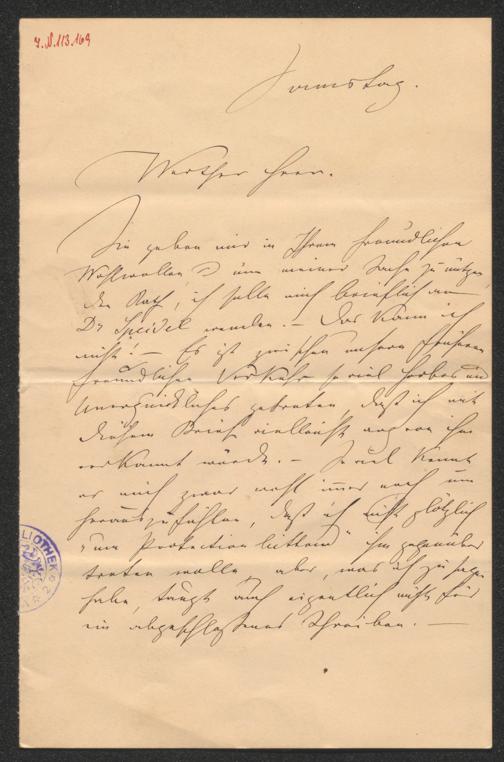 I.N.113.169
Samstag.
Werther Herr.
Sie geben mir in Ihrem freundlichen
Wohlwollen, um meiner Sache zu nützen,
den Rath, ich solle mich brieflich an
Dr Speidel wenden. – Das kann ich
nicht! – Es ist zwischen unsern früheren
freundlichen Verkehr so viel herbes und
unerquickliches getreten, daß ich mit
diesem Brief vielleicht arg von ihm
verkannt würde. – So viel kennt
er mich zwar wohl immer noch um
herauszufühlen, daß ich nicht plötzlich
"um Protection bittend" ihm gegenüber
treten wolle, aber, was ich zu sagen
habe, taugt auch eigentlich nicht für
ein abgeschlossenes Schreiben. –
BLIOTHEK